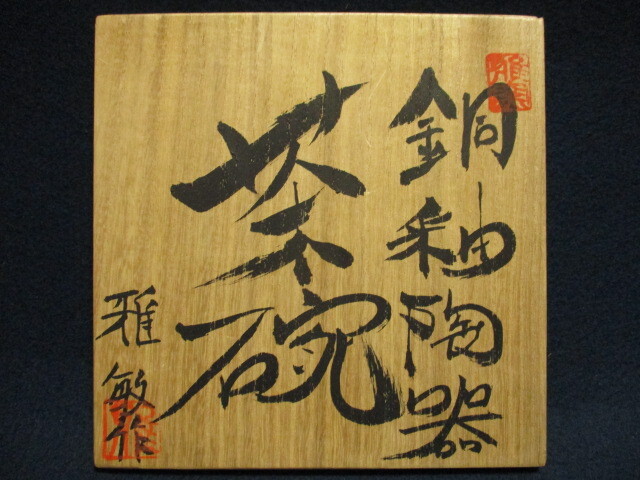 銅釉陶器
茶碗
雅敏作